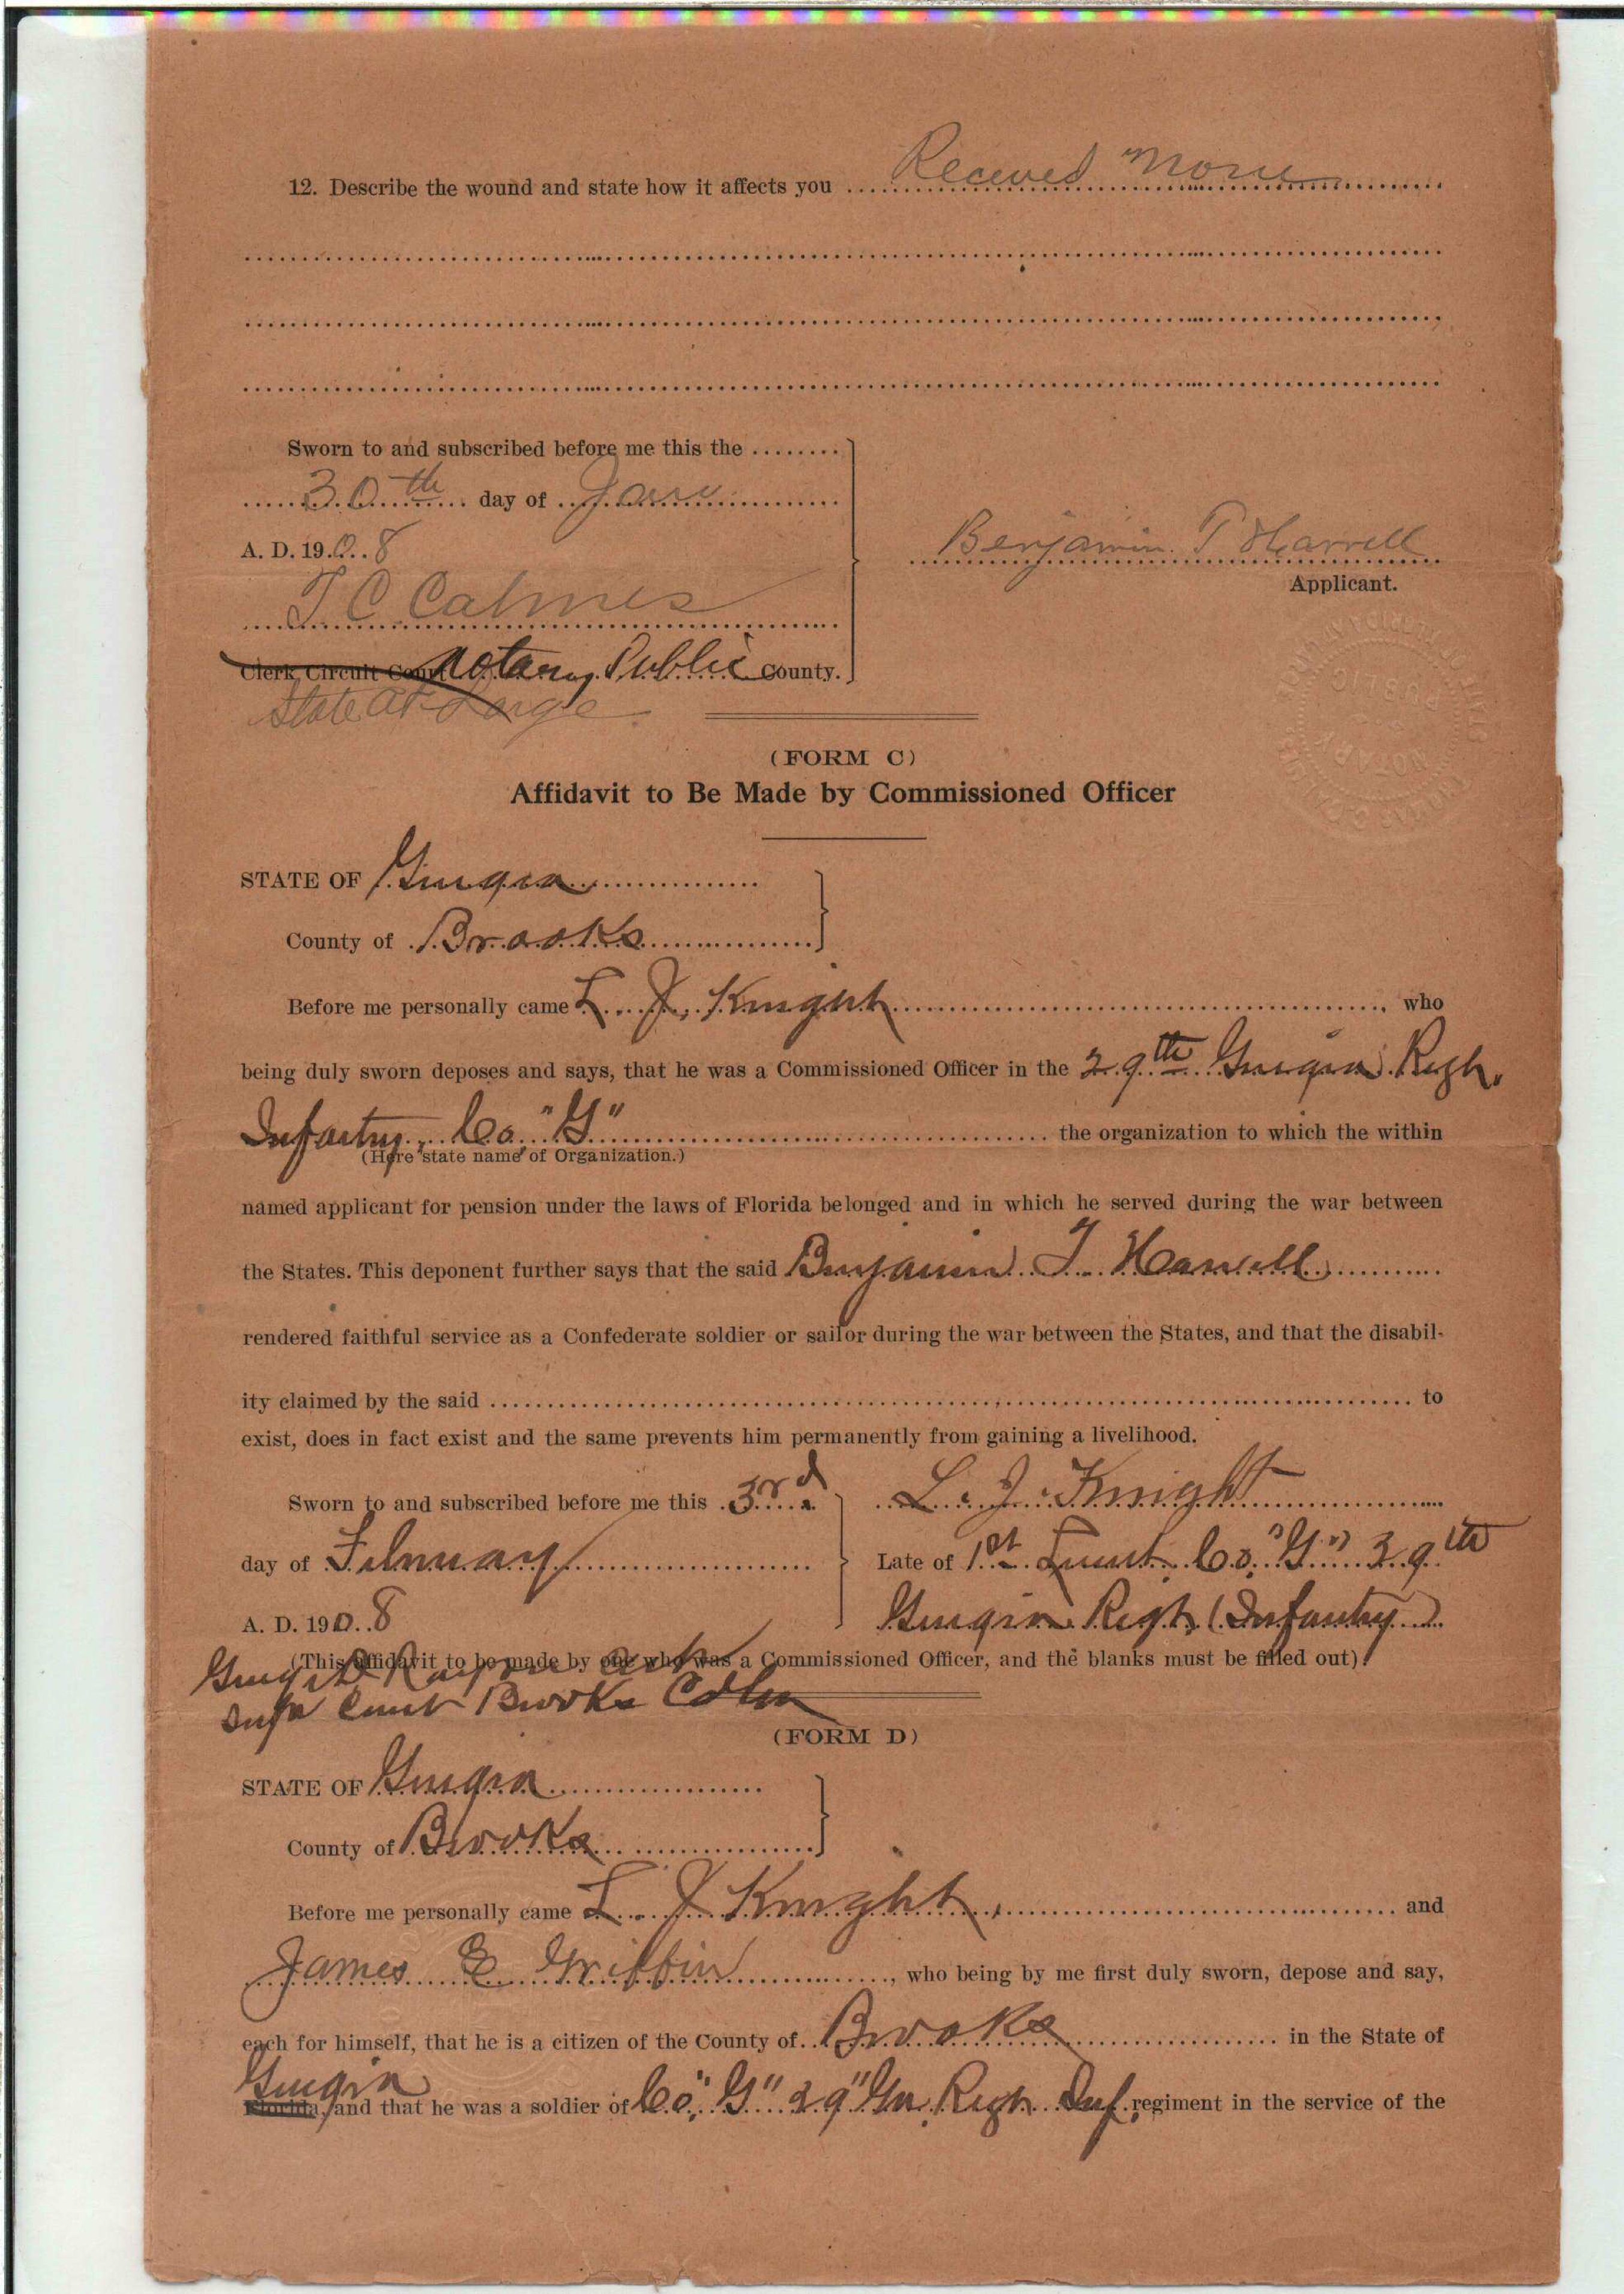 12. Describe the wound and state how it affects you Received None
Sworn to and subscribed before me this the
30th day of Jany
A. D. 1908
T C Calmes
Benjamin T Harrell
Applicant.
Clerk Circuit Court Notary Public County.
State At Large
NOTARY PUBLIC
(FORM C)
Affidavit to Be Made by Commissioned Officer
STATE OF Georgia
County of Brooks
Before me personally came L. J. Knight, who
being duly sworn deposes and says, that he was a Commissioned Officer in the 29th Georgia Regt.
Infantry, Co. "G" the organization to which the within
(Here state name of Organization.)
named applicant for pension under the laws of Florida belonged and in which he served during the war between
the States. This deponent further says that the said Benjamin T. Harrell
rendered faithful service as a Confederate soldier or sailor during the war between the States, and that the disabil-
ity claimed by the said to
exist, does in fact exist and the same prevents him permanently from gaining a livelihood.
Sworn to and subscribed before me this 3rd
L. J. Knight
day of February
Late of 1st Lieut. Co. "G" 29th
A. D. 1908
Georgia Regt. (Infantry)
(This affidavit to be made by one who was a Commissioned Officer, and the blanks must be filled out).
Brooks
(FORM D)
STATE OF Georgia
County of Brooks
Before me personally came L. J. Knight, and
James E Griffin, who being by me first duly sworn, depose and say,
each for himself, that he is a citizen of the County of Brooks in the State of
Georgia
Florida, and that he was a soldier of Co. "G" 29" Ga. Regt. Inf. regiment in the service of the